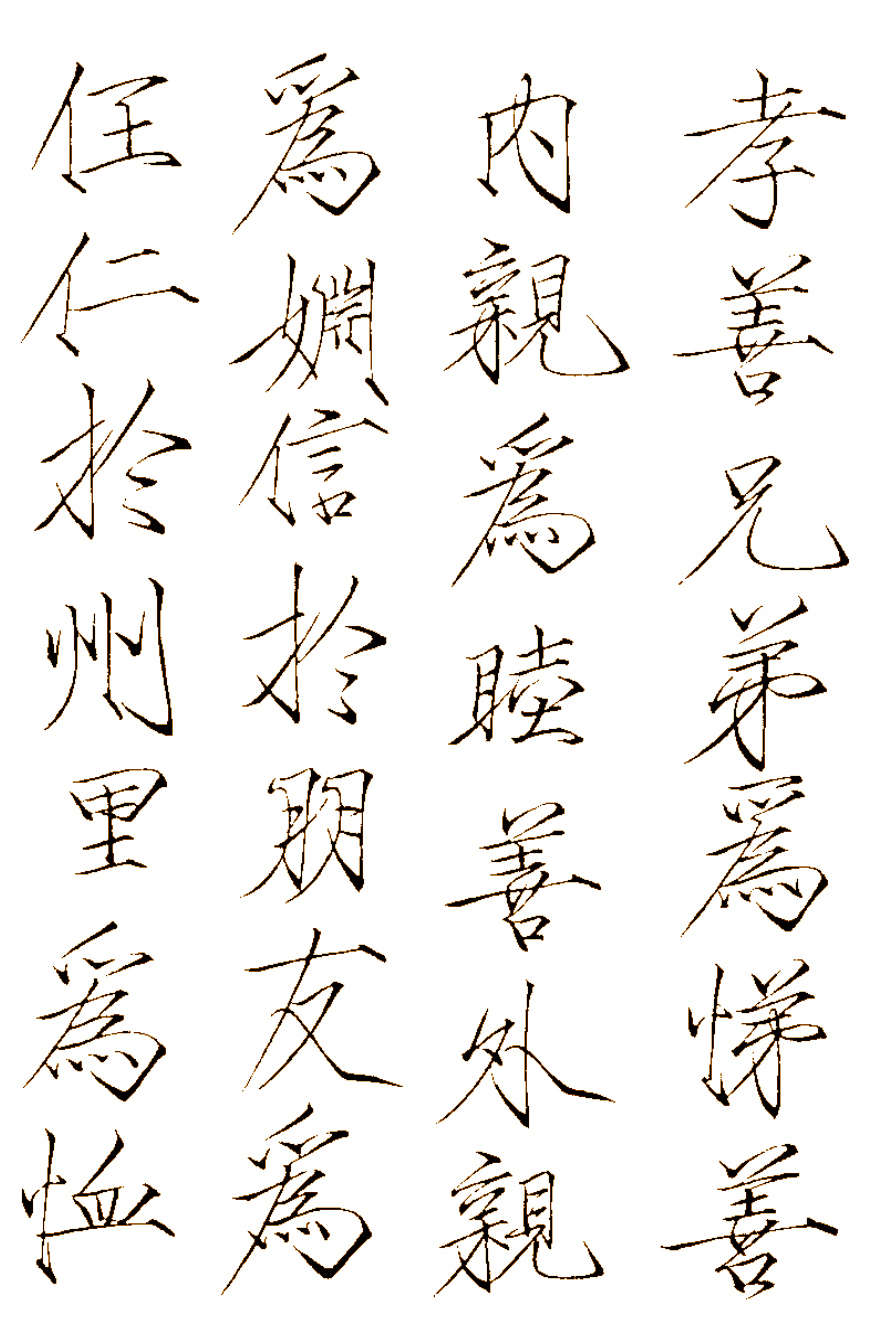 孝善兄弟爲悌善
內親爲睦善外親
爲婣信於朋友爲
任仁於州里爲恤